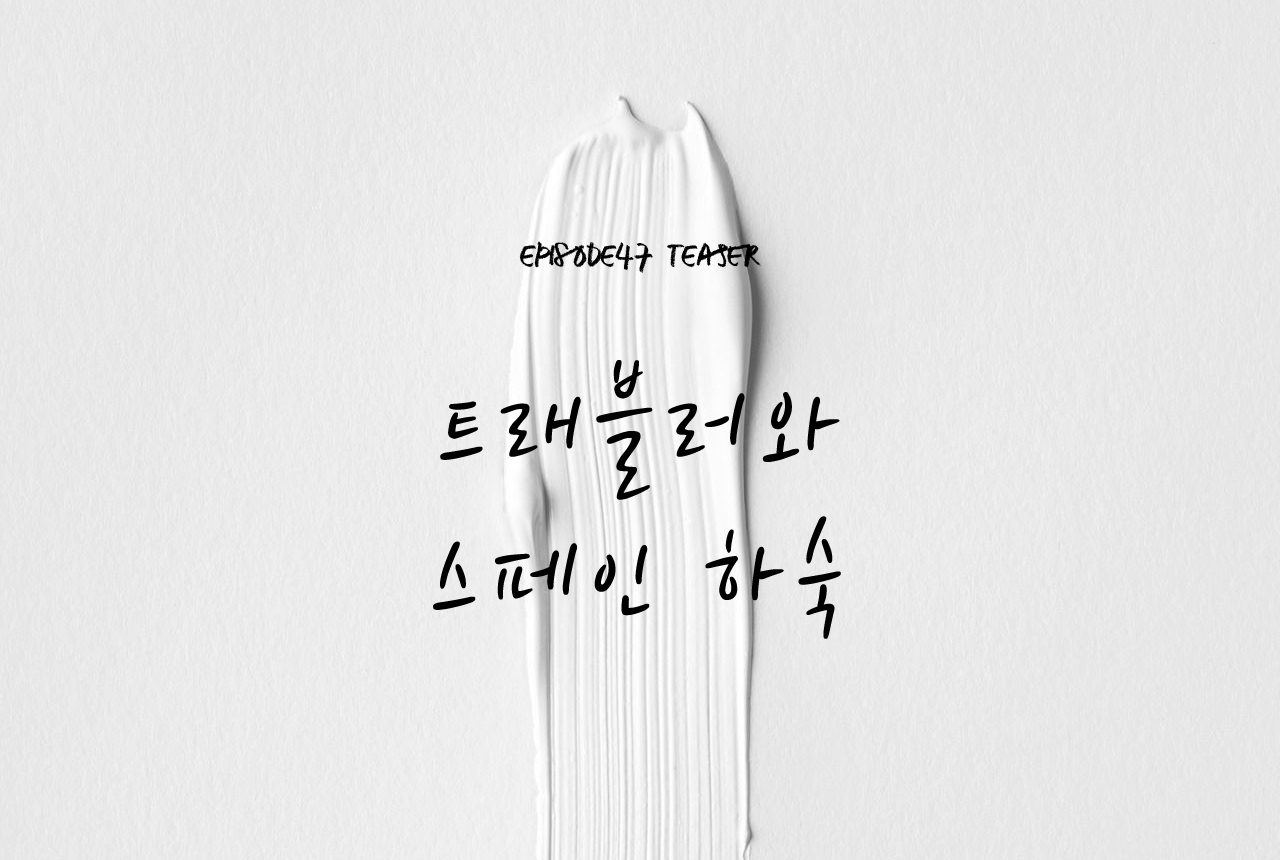 EPISODE47 TEASER
트래블러와
스페인 하숙